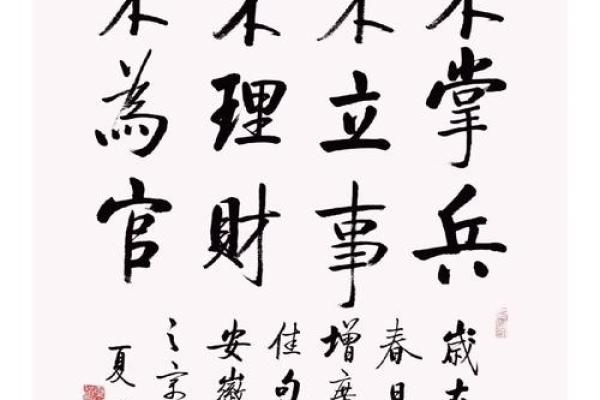 不掌兵
不立事
不理財
不為官
歲
春
增廣
佳句
安徽
之
夏